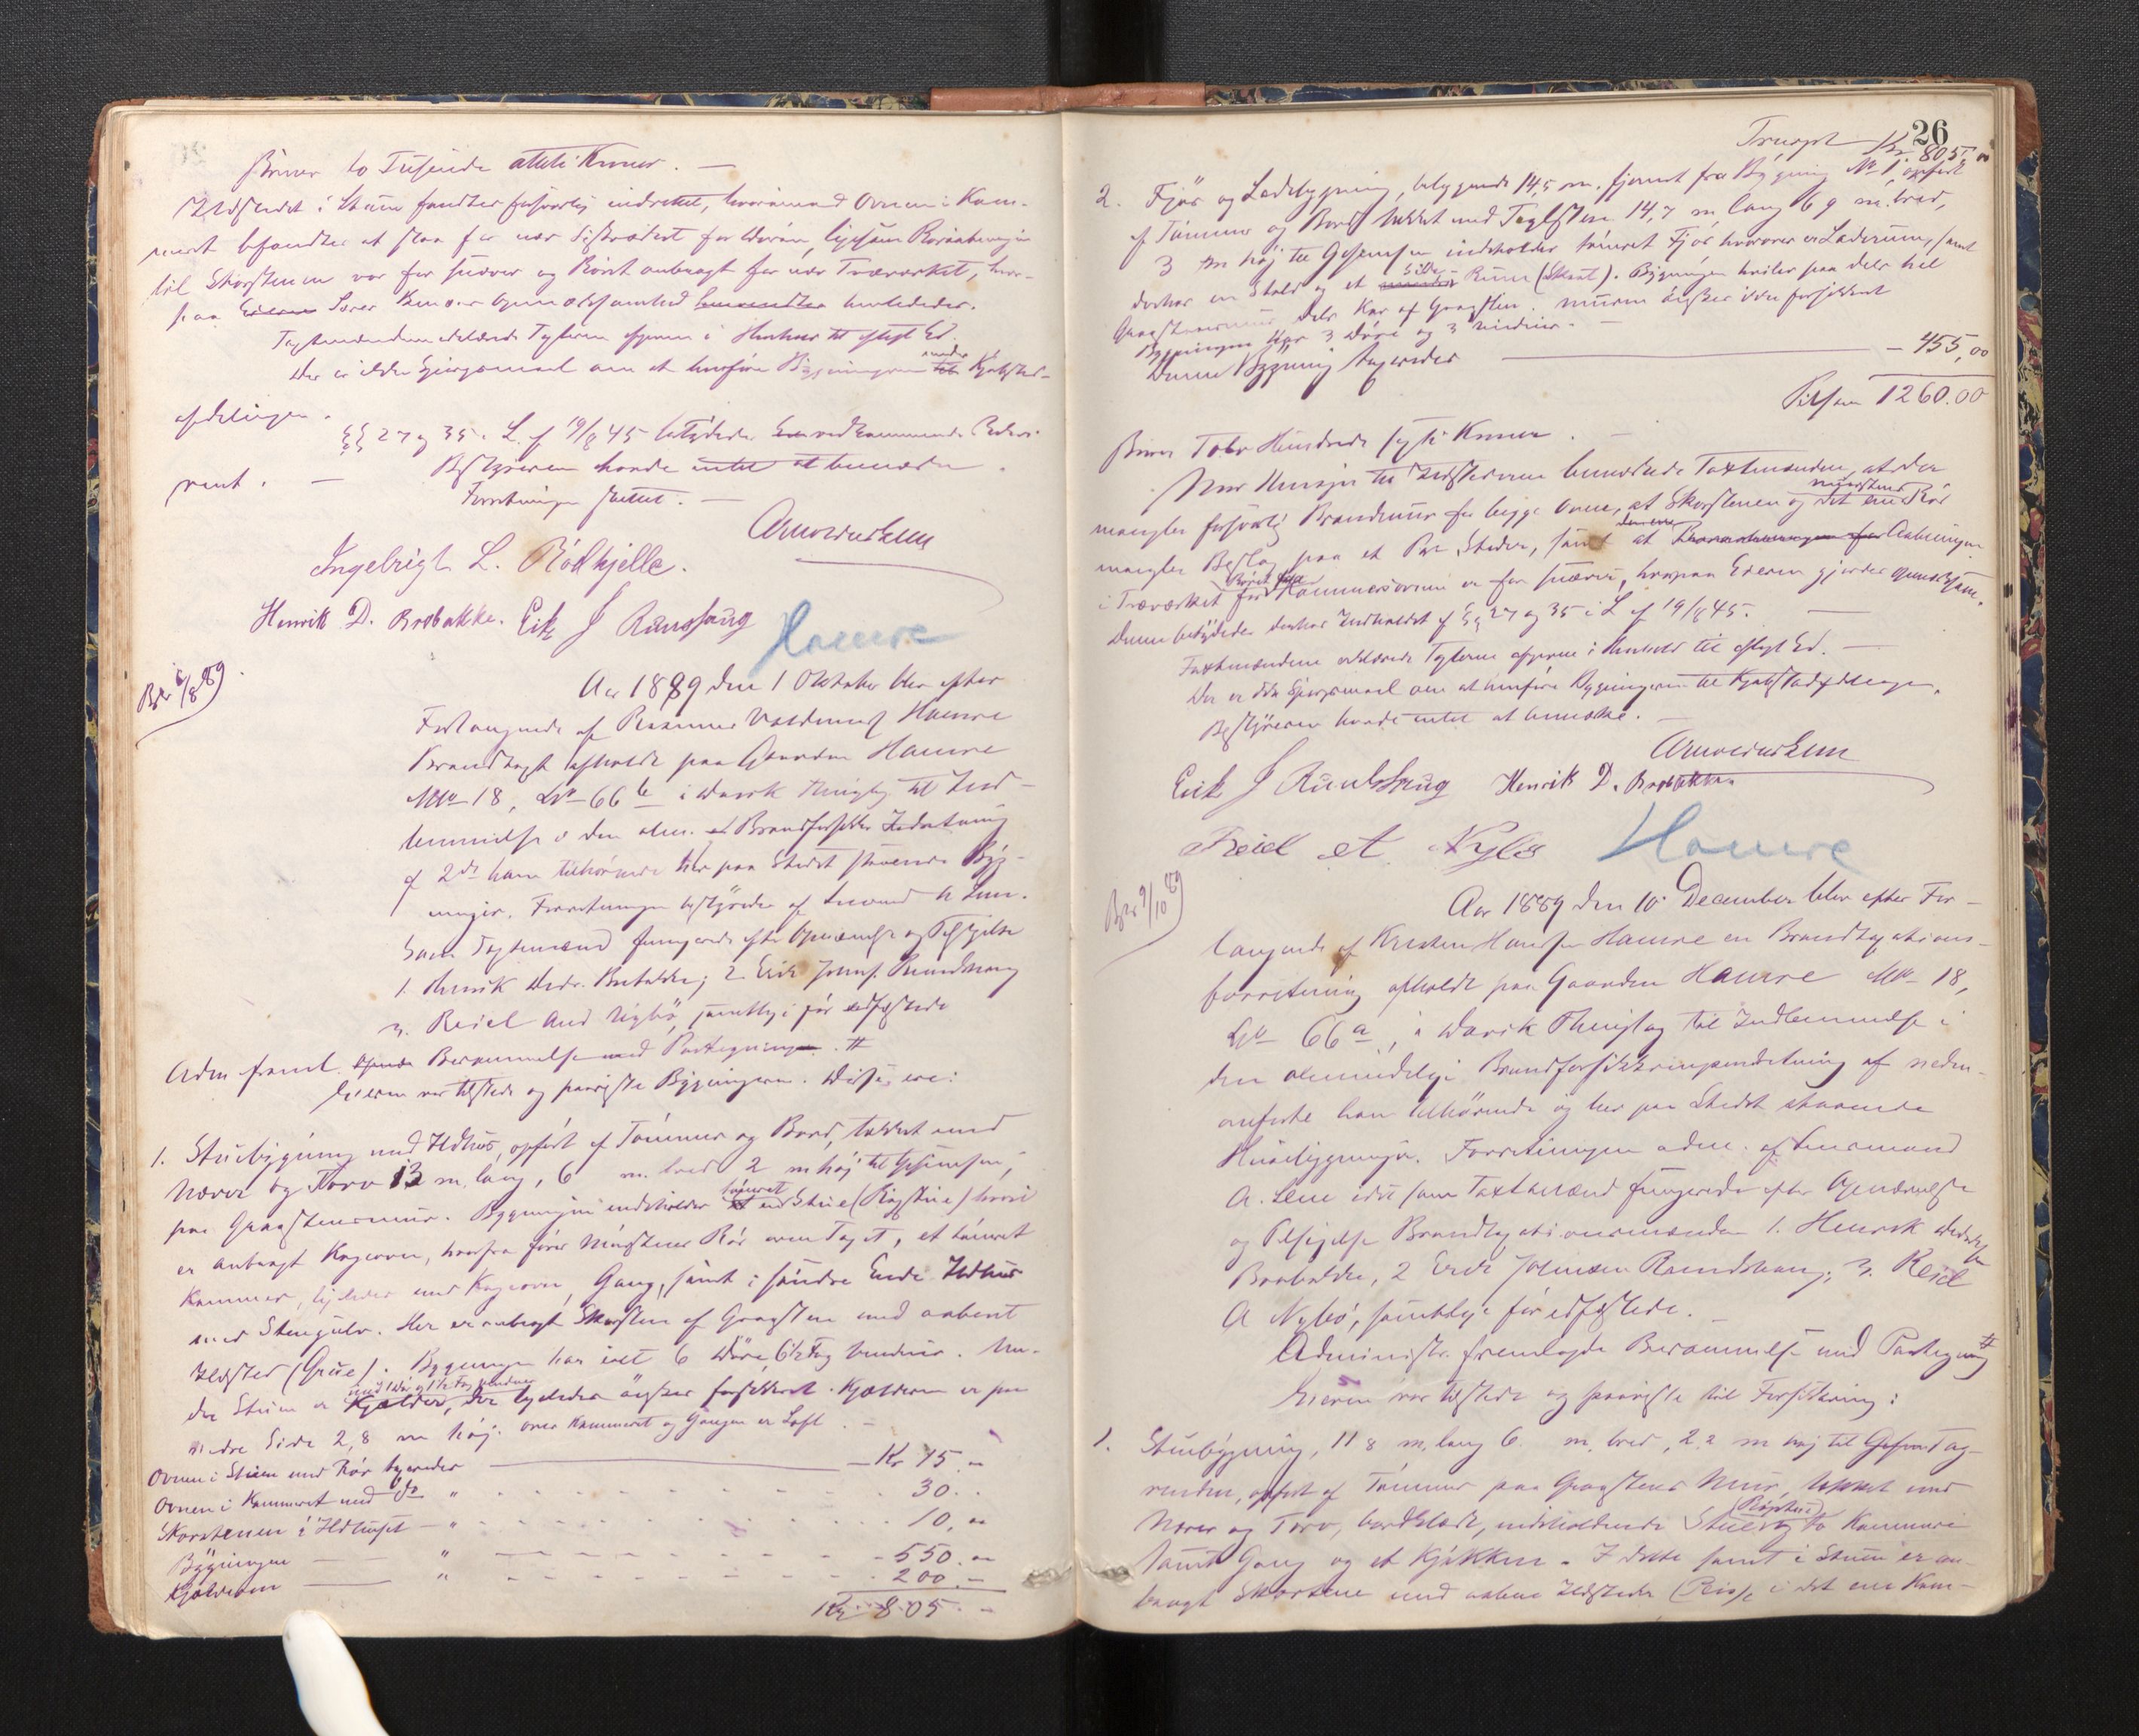 skriver to Tusende otteti Kroner. —
Ildstedet i Stuen fandtes forsvarlig indrettet, hvorimod Ovnen i Kam-
meret befandtes at staa for nær
til Skorstenen var for snæver og Røret anbragt for nær Træværket, hvor-
paa Eieren
Taxtmændene erklærede Taxterne afgivne i Henhold til aflagt Ed.
Der er ikke Spørgsmaal om at henføre Bygningerne under Kjøbstad-
afdelingen.
§§ 27 og 35 i L. af 19/8 45 betydedes vedkommende
rent. —
Bestyreren havde intet at bemærke.
Forretningen sluttet. —
Arnoldus Lem
Ingebrigt L. Rödhjelle.
Henrik D. Brobakke. Erik J Raudshaug
Hamre
Ber 6/8 89
Aar 1889 den 1 Oktober blev efter
Forlangende af Rasmus Valdemar Hamre
Brandtaxt afholdt paa Gaarden Hamre
MNo 18, LNo 66 b i Davik Thinglag til Ind-
lemmelse i den alm. Brandforsikr Indretning
af 2de ham tilhørende her paa Stedet staaende Byg-
ninger. Forretningen bestyredes af Lensmand A Lem.
Som Taxtmænd fungerede efter Opnævnelse og Tilsigelse
1. Henrik Didr. Brobakke; 2. Erik Johns. Raudshaug
3. Reiel And Nybö, samtlige før edfæstede
Adm freml. Berammelse med Paategning. #
Eieren var tilstede og paaviste Bygningerne. Disse ere:
1. Stuebygning med Ildhus, opført af Tømmer og Bord, tækket med
Næver og Torv 13 m. lang, 6 m. bred 2 m høj til Gesimsen,
paa Graastensmur. Bygningen indeholder tømret Stue (Røgstue) hvori
er anbragt Kogeovn, hvorfra fører Murstens Rør over Taget, et tømret
Kammer, ligeledes med Kogeovn, Gang, samt i søndre Ende Ildhus
med Stengulv. Her er anbragt Skorsten af Graasten med aabent
Ildsted (Grue). Bygningen har ialt 6 Døre, 6½ Fag Vinduer. Un-
der Stuen er Kjælder, med 1 Dør og 1½ Fag Vinduer der ligeledes ønskes forsikkret. Kjælderen er paa
nedre Side 2,8 m høj. over Kammeret og Gangen er Loft. —
Ovnen i Stuen med Rör taxeredes — Kr 15 . —
Ovnen i Kammeret med do " 30 . .
Skorstenen i Ildhuset — " 10, —
Bygningen — " 550 . —
Kjælderen — " 200 . —
Kr 805 . —
26
Transport Kr 805, 00
2. Fjös og Ladebygning, beliggende 14,5 m. fjernet fra Bygning No 1, opført
af Tømmer og Bord tækket med Taglsten 14,7 m lang 6,9 m. bred,
3 m høj til Gesimsen indeholder tømret Fjös hvorover er Laderum, samt
desuden en Stald og et Side-Rum (Skut). Bygningen hviler paa dels hel
Graastensmur dels Kar af Graasten. Muren önskes ikke forsikkret
Bygningen har 3 Döre og 3 Vinduer. —
Denne Bygning taxeredes — 455,00
Tilsam 1260.00
skriver Tolv Hundrede sexti Kroner. —
Med Hensyn til Ildstederne bemærkede Taxtmændene, at der
mangler forsvarlig Brandmur for begge Ovne, at Skorstenen og det ene Murstens Rör
mangler Beslag paa et Par Steder, samt at den ene Aabningen
i Træværket for Röret fra Kammersovnen er for snæver, hvorpaa Eieren gjordes opmærksom.
Denne betydedes derhos Indholdet af §§ 27 og 35 i L af 19/8 45. —
Taxtmændene erklærede Taxterne afgivne i Henhold til aflagt Ed. —
Der er ikke Spørgsmaal om at henføre Bygningerne til Kjøbstadafdelingen.
Bestyreren havde intet at bemærke. —
Arnoldus Lem
Erik J Raudshaug Henrik D. Brobakken
Reiel A. Nybö Hamre
Ber 9/10 89
Aar 1889 den 10 December blev efter For-
langende af Kristen Hansen Hamre en Brandtaxations-
forretning afholdt paa Gaarden Hamre MNo 18,
LNo 66 a, i Davik Thinglag til Indlemmelse i
den almindelige Brandforsikkringsindretning af neden-
anførte ham tilhørende og her paa Stedet staaende
Husebygninger. Forretningen adm. af Lensmand
A. Lem idet som Taxtmænd fungerede efter Opnævnelse
og Tilsigelse Brandtaxationsmændene 1. Henrik Didriksen
Brobakke, 2 Erik Johnsen Raudshaug, 3. Reiel
A Nybö, samtlige før edfæstede. —
Administr. fremlagde Berammelse med Paategning #
Eieren var tilstede og paaviste til Forsikring:
1. Stuebygning, 11,8 m. lang 6 m. bred, 2,2 m høj til Tag-
renden, opført af Tømmer paa Graastens Mur, tækket med
Næver og Torv, bordklædt, indeholdende Stue (Røgstue) to Kammere
samt Gang og et Kjøkken. I dette samt i Stuen er an-
bragt Skorstene med aabne Ildsteder i det ene Kam-